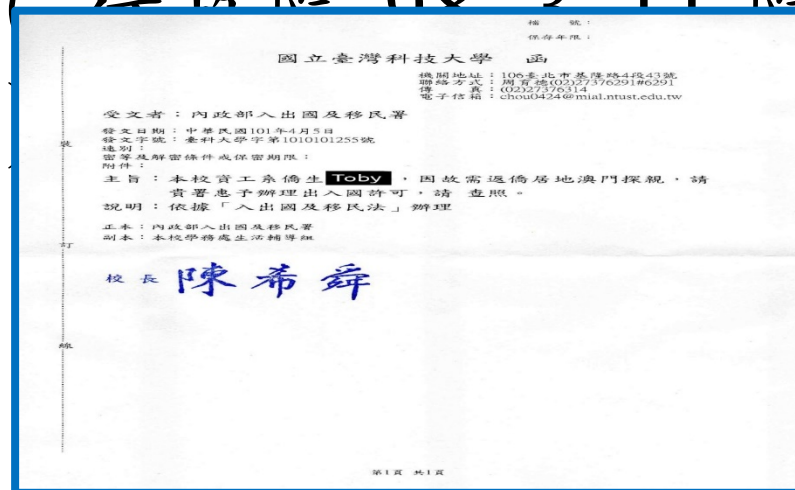 檔　號：
保存年限：
國立臺灣科技大學　函
機關地址：106臺北市基隆路4段43號
聯絡方式：周育德(02)27376291#6291
傳　　真：(02)27376314
電子信箱：chou0424@mial.ntust.edu.tw
受文者：內政部入出國及移民署
發文日期：中華民國101年4月5日
發文字號：臺科大學字第1010101255號
速別：
密等及解密條件或保密期限：
附件：
主旨：本校資工系僑生 Toby ，因故需返僑居地澳門探親，請
貴署惠予辦理出入國許可，請　查照。
說明：依據「入出國及移民法」辦理
正本：內政部入出國及移民署
副本：本校學務處生活輔導組
校長 陳希舜
裝
訂
線
第1頁 共1頁